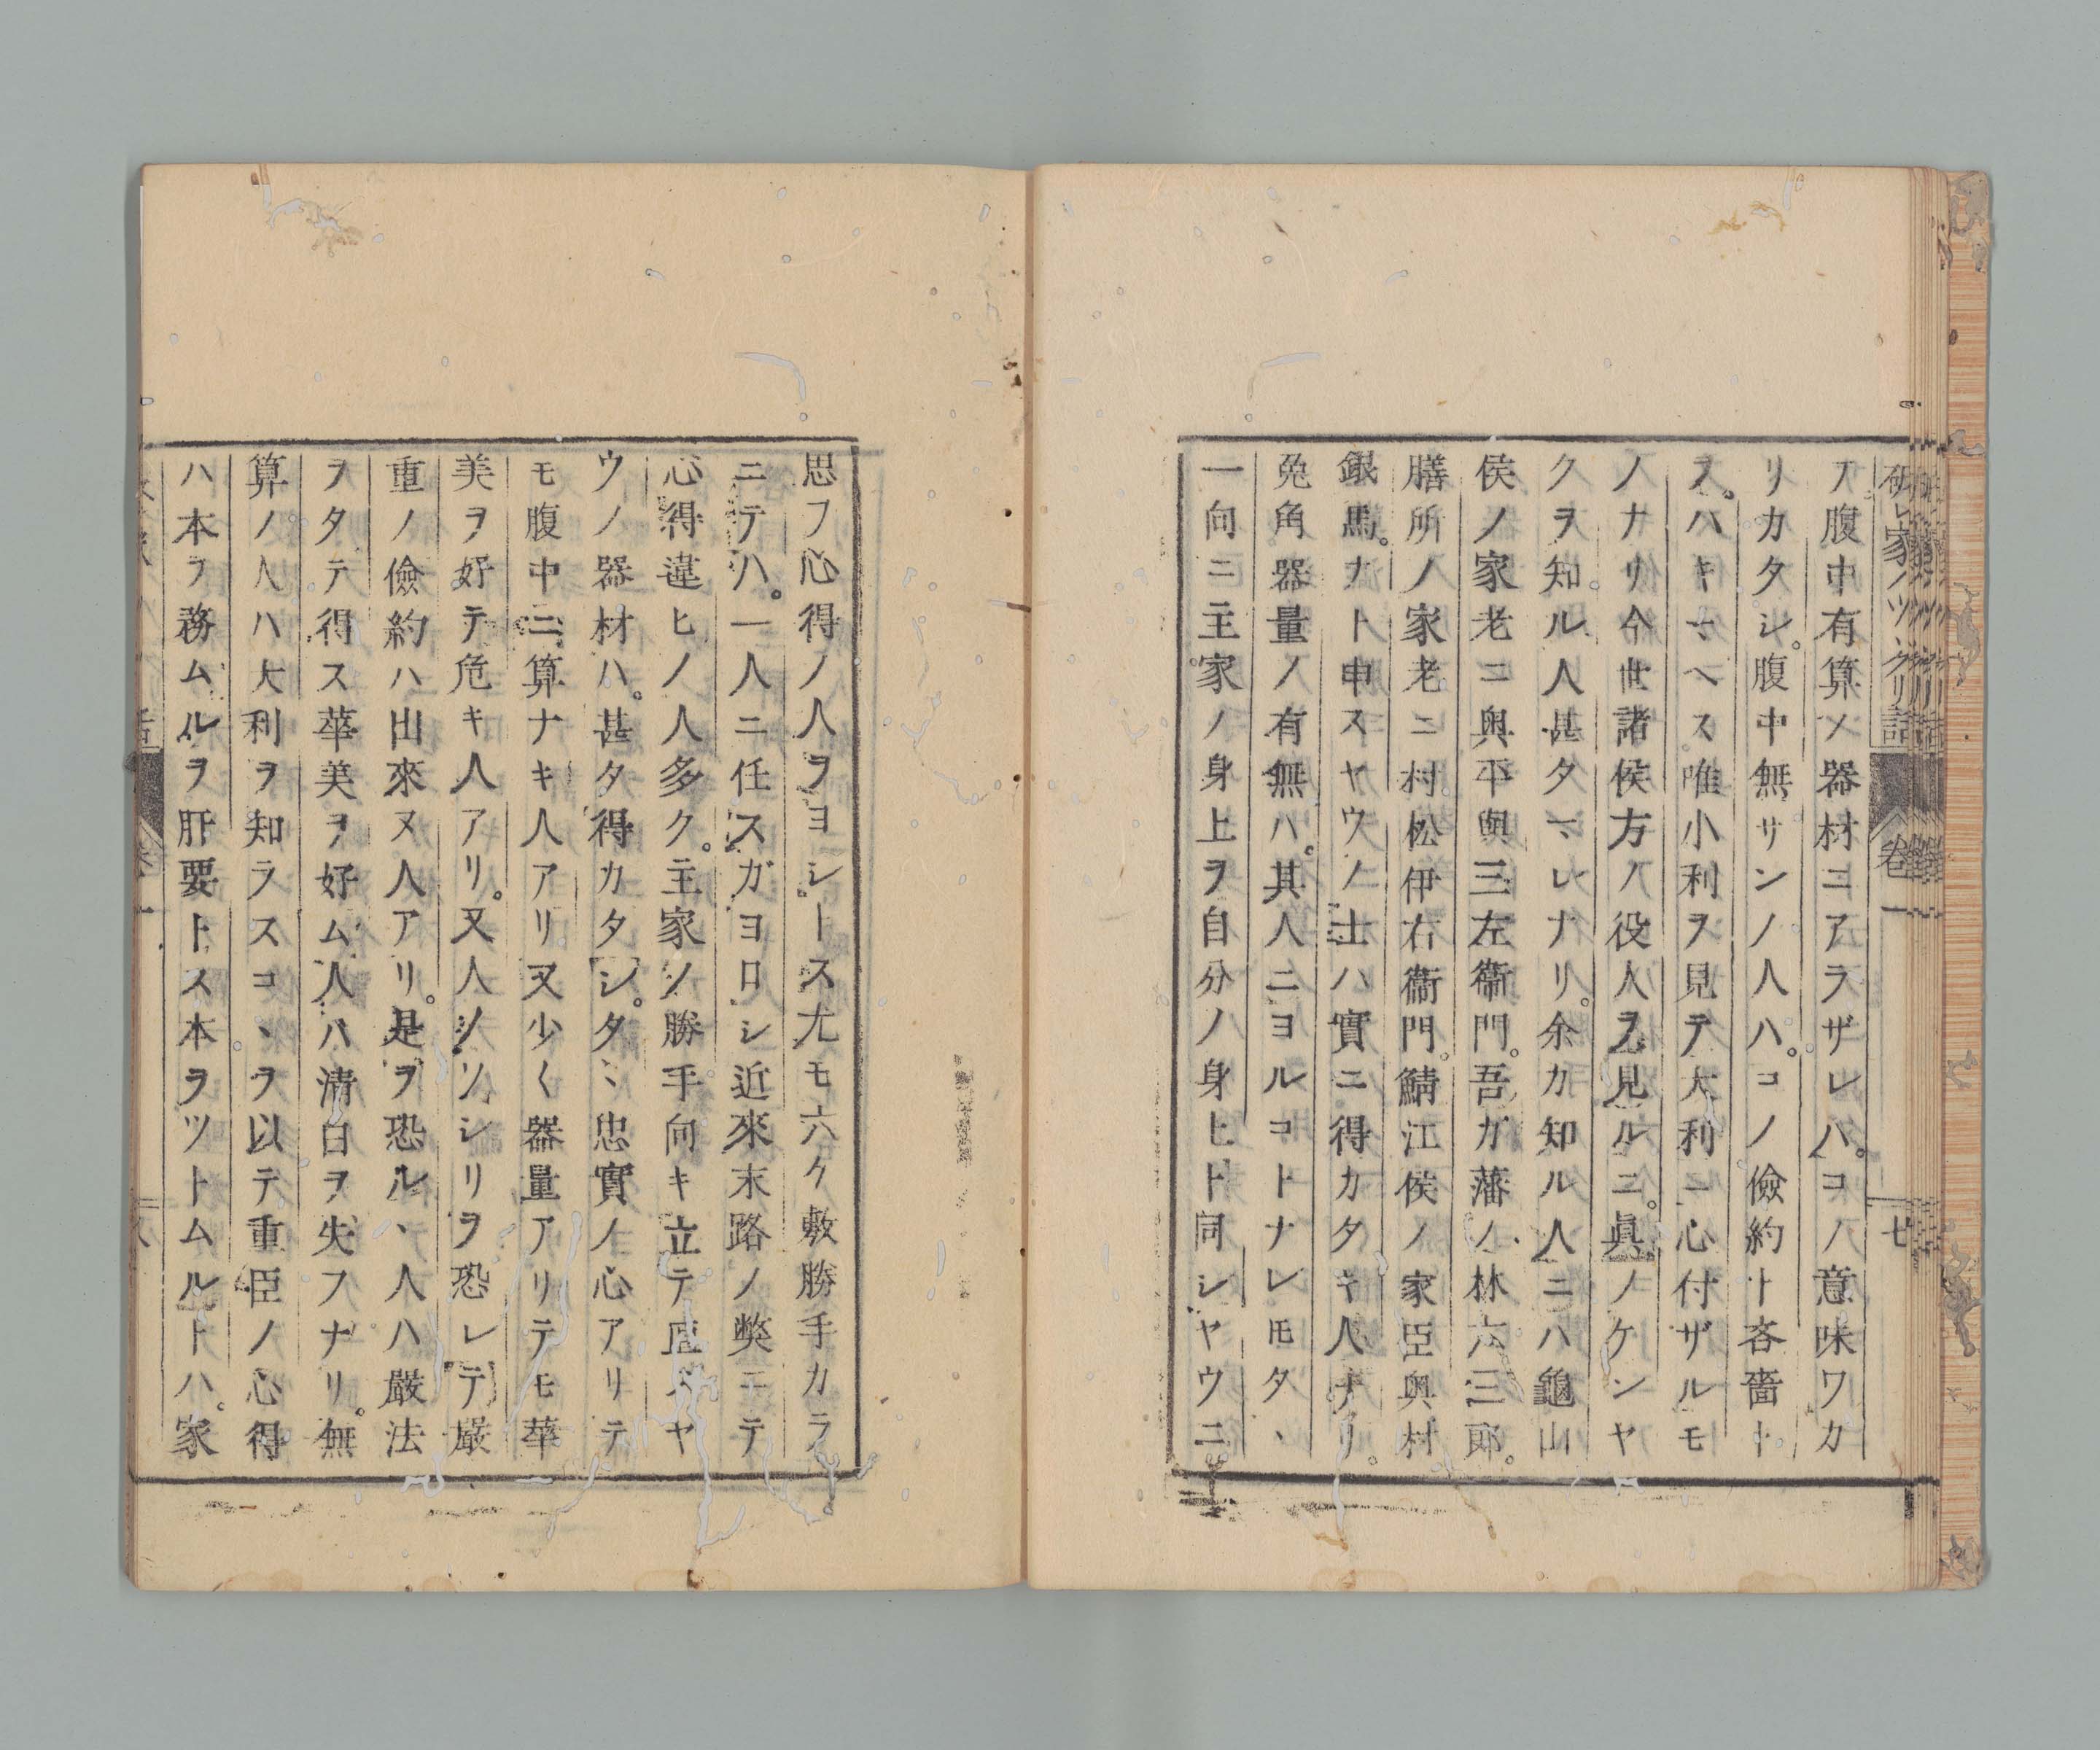 破レ家ノツヾクリ話 卷一 七
ア腹中有算ノ器材ニアラザレハ。コノ意味ワカ
リカタシ。腹中無サンノ人ハ。コノ儉約ト吝嗇ト
ヲ。ハキマヘス唯小利ヲ見テ大利ニ心付ザルモ
ノナリ今世諸侯方ノ役人ヲ見ルニ。眞ノケンヤ
クヲ知ル人甚タマレナリ。余カ知ル人ニハ龜山
侯ノ家老ニ與平與三左衞門。吾ガ藩ノ林六三郎。
膳所ノ家老ニ村松伊右衞門。鯖江侯ノ家臣與村
銀馬。ナト申スヤウノ士ハ實ニ得カタキ人ナリ。
兔角器量ノ有無ハ。其人ニヨルコトナレ𪜈タヽ
一向ニ主家ノ身上ヲ自分ノ身上ト同シヤウニ。
思フ心得ノ人ヲヨシトス尤モ六ケ敷勝手カラ
ニテハ。一人ニ任スガヨロシ近來末路ノ弊ニテ
心得違ヒノ人多ク。主家ノ勝手向キ立テ直スヤ
ウノ器材ハ。甚タ得カタシ。タヽ忠實ノ心アリテ
モ腹中ニ算ナキ人アリ又少く器量アリテモ華
美ヲ好テ危キ人アリ。又人ノソシリヲ恐レテ嚴
重ノ儉約ハ出來ヌ人アリ。是ヲ恐ルヽ人ハ嚴法
ヲタテ得ス華美ヲ好ム人ハ清白ヲ失フナリ。無
算ノ人ハ大利ヲ知ラスコヽヲ以テ重臣ノ心得
ハ本ヲ務ムルヲ肝要トス本ヲツトムルトハ。家